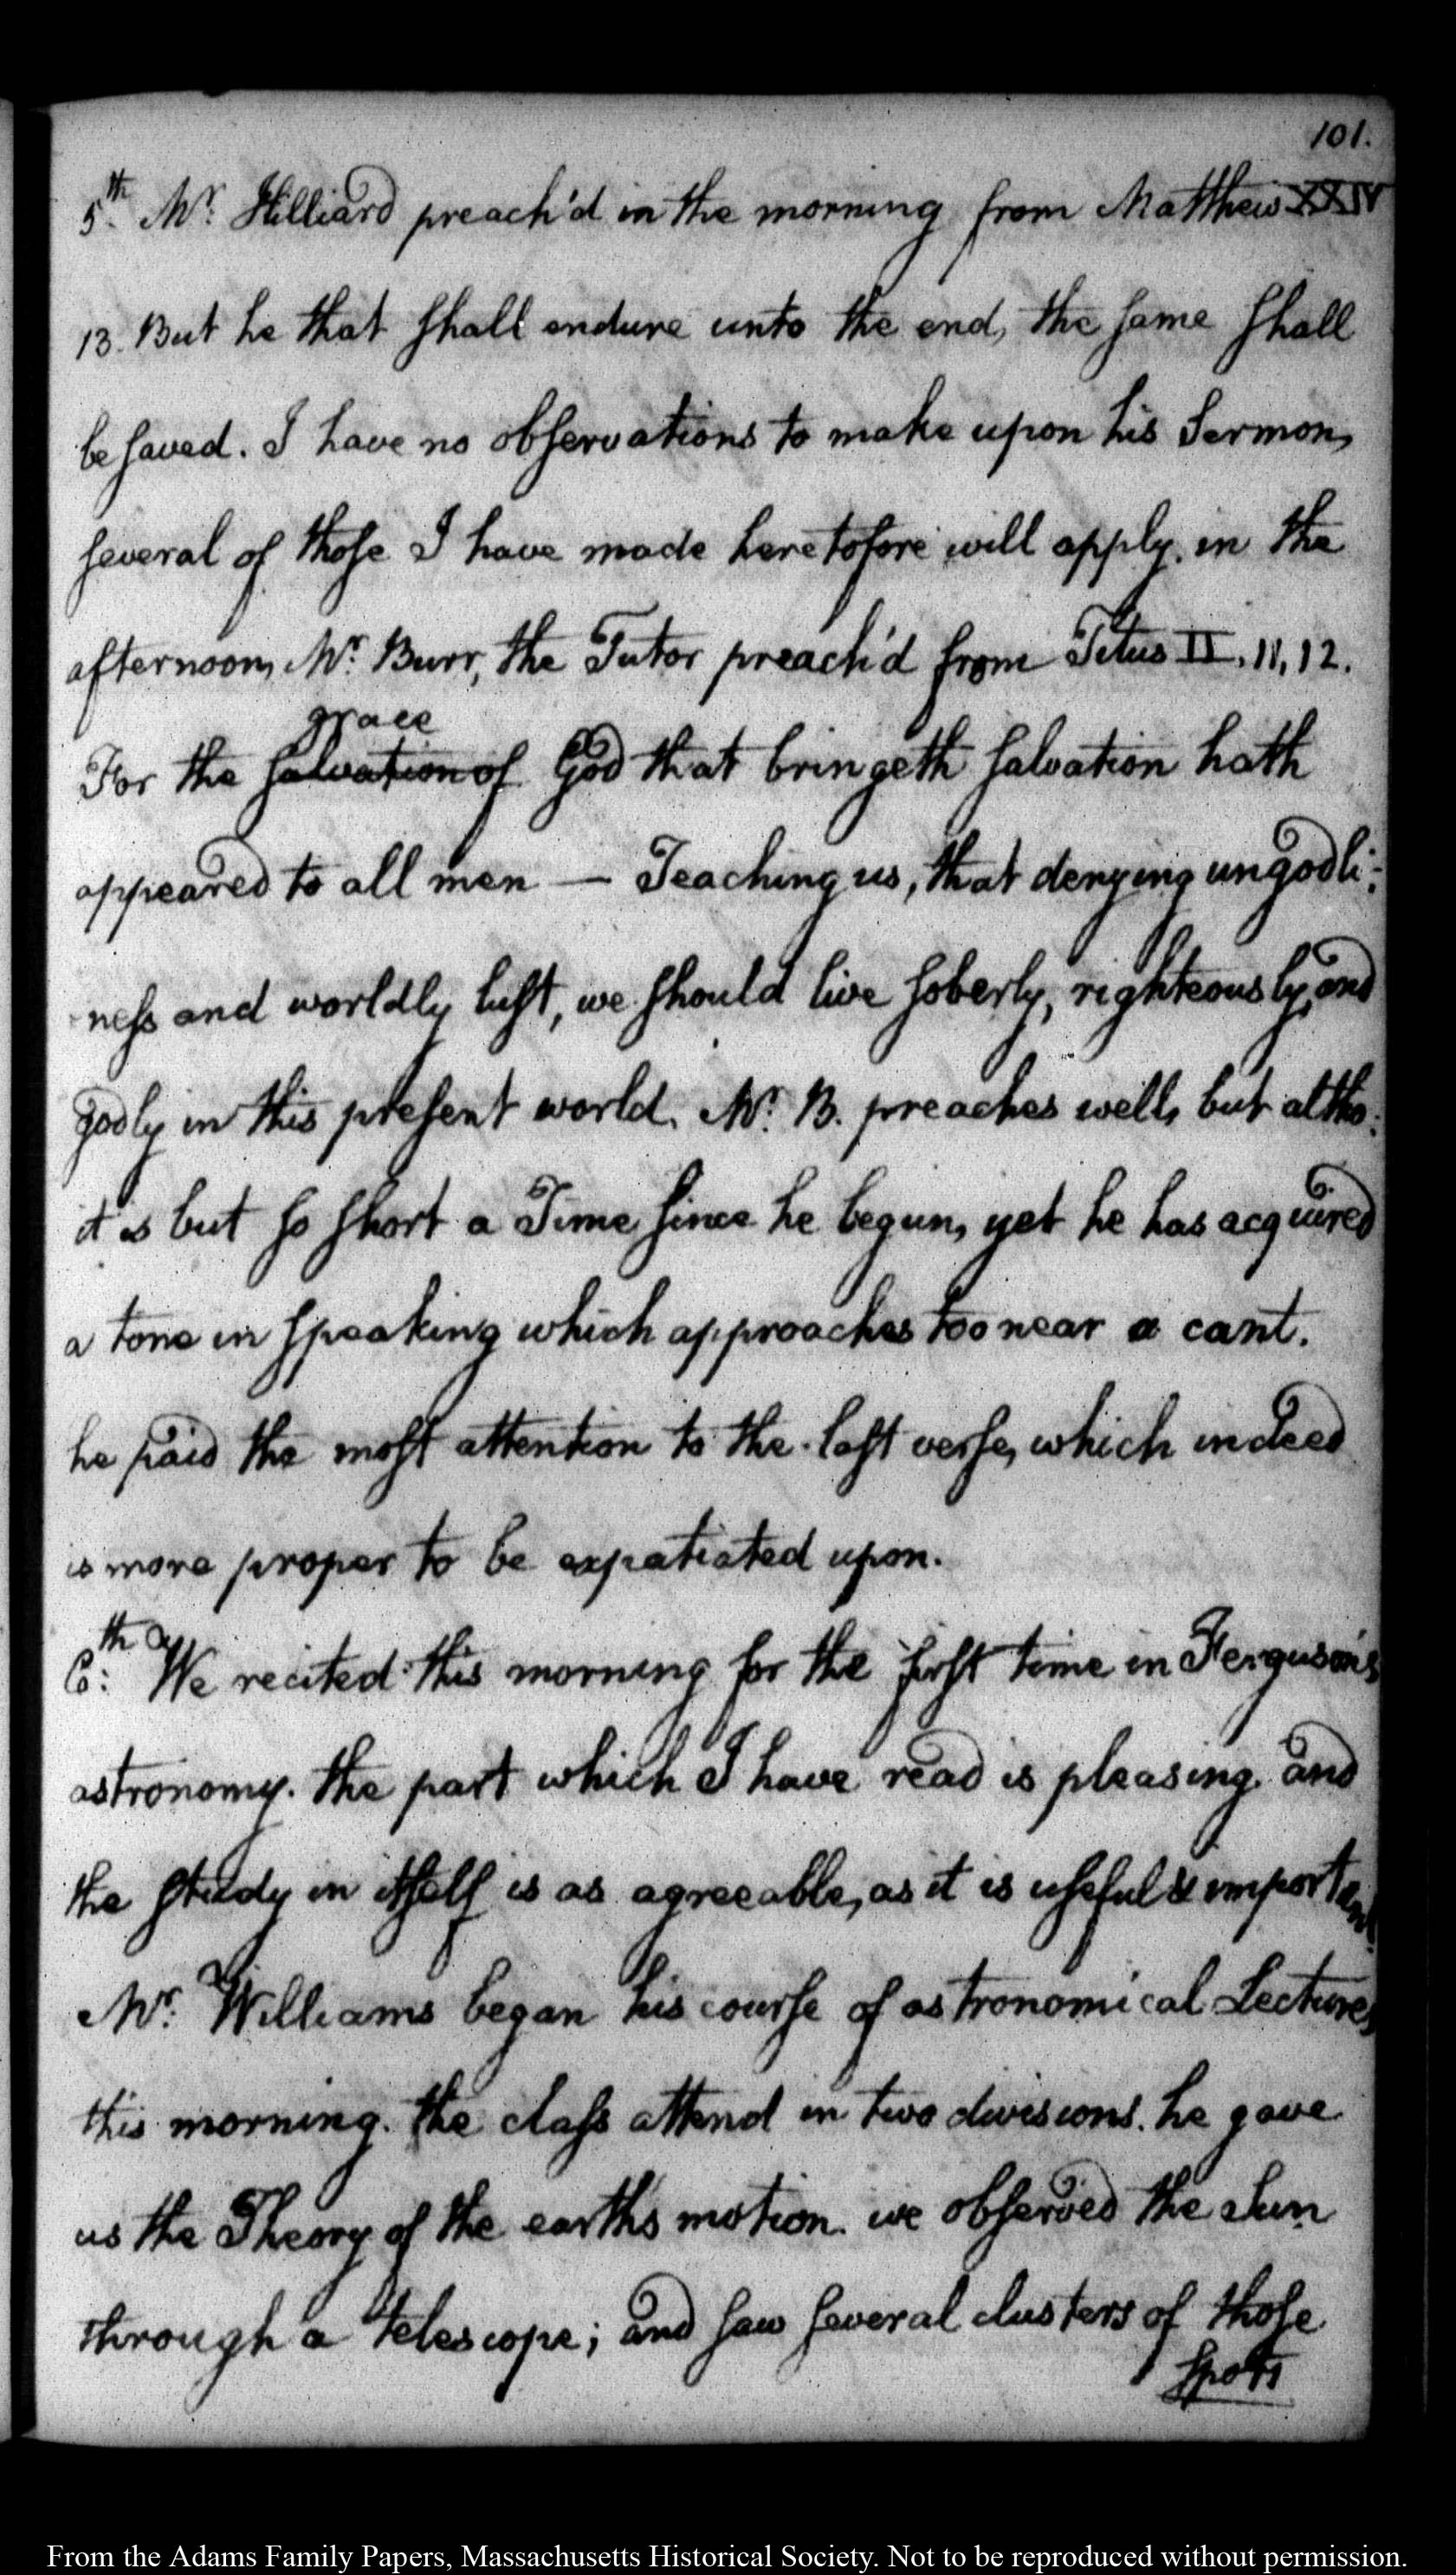 101.
5th. Mr. Hilliard preach'd in the morning from Matthew XXIV
13. But he that ſhall endure unto the end, the ſame ſhall
be ſaved. I have no obſervations to make upon his Sermon,
ſeveral of thoſe I have made heretofore will apply. in the
afternoon, Mr. Burr, the Tutor preach'd from Titus II, 11, 12.
grace
For the ſalvation of God that bringeth ſalvation hath
appeared to all men — Teaching us, that denying ungodli:
neſs and worldly luſt, we ſhould live ſoberly, righteously, and
godly in this preſent world. Mr. B. preaches well, but altho:
it is but ſo ſhort a Time ſince he begun, yet he has acquired
a tone in ſpeaking which approaches too near a cant.
he paid the moſt attention to the laſt verſe, which indeed
is more proper to be expatiated upon.
6th: We recited this morning for the firſt time in Ferguson's
astronomy. the part which I have read is pleasing and
the ſtudy in itſelf is as agreeable, as it is uſeful & important.
Mr. Williams began his courſe of astronomical Lectures,
this morning. the claſs attend in two divisions. he gave
us the Theory of the earths motion. we obſerved the Sun
through a telescope; and ſaw ſeveral clusters of thoſe
ſpots
From the Adams Family Papers, Massachusetts Historical Society. Not to be reproduced without permission.